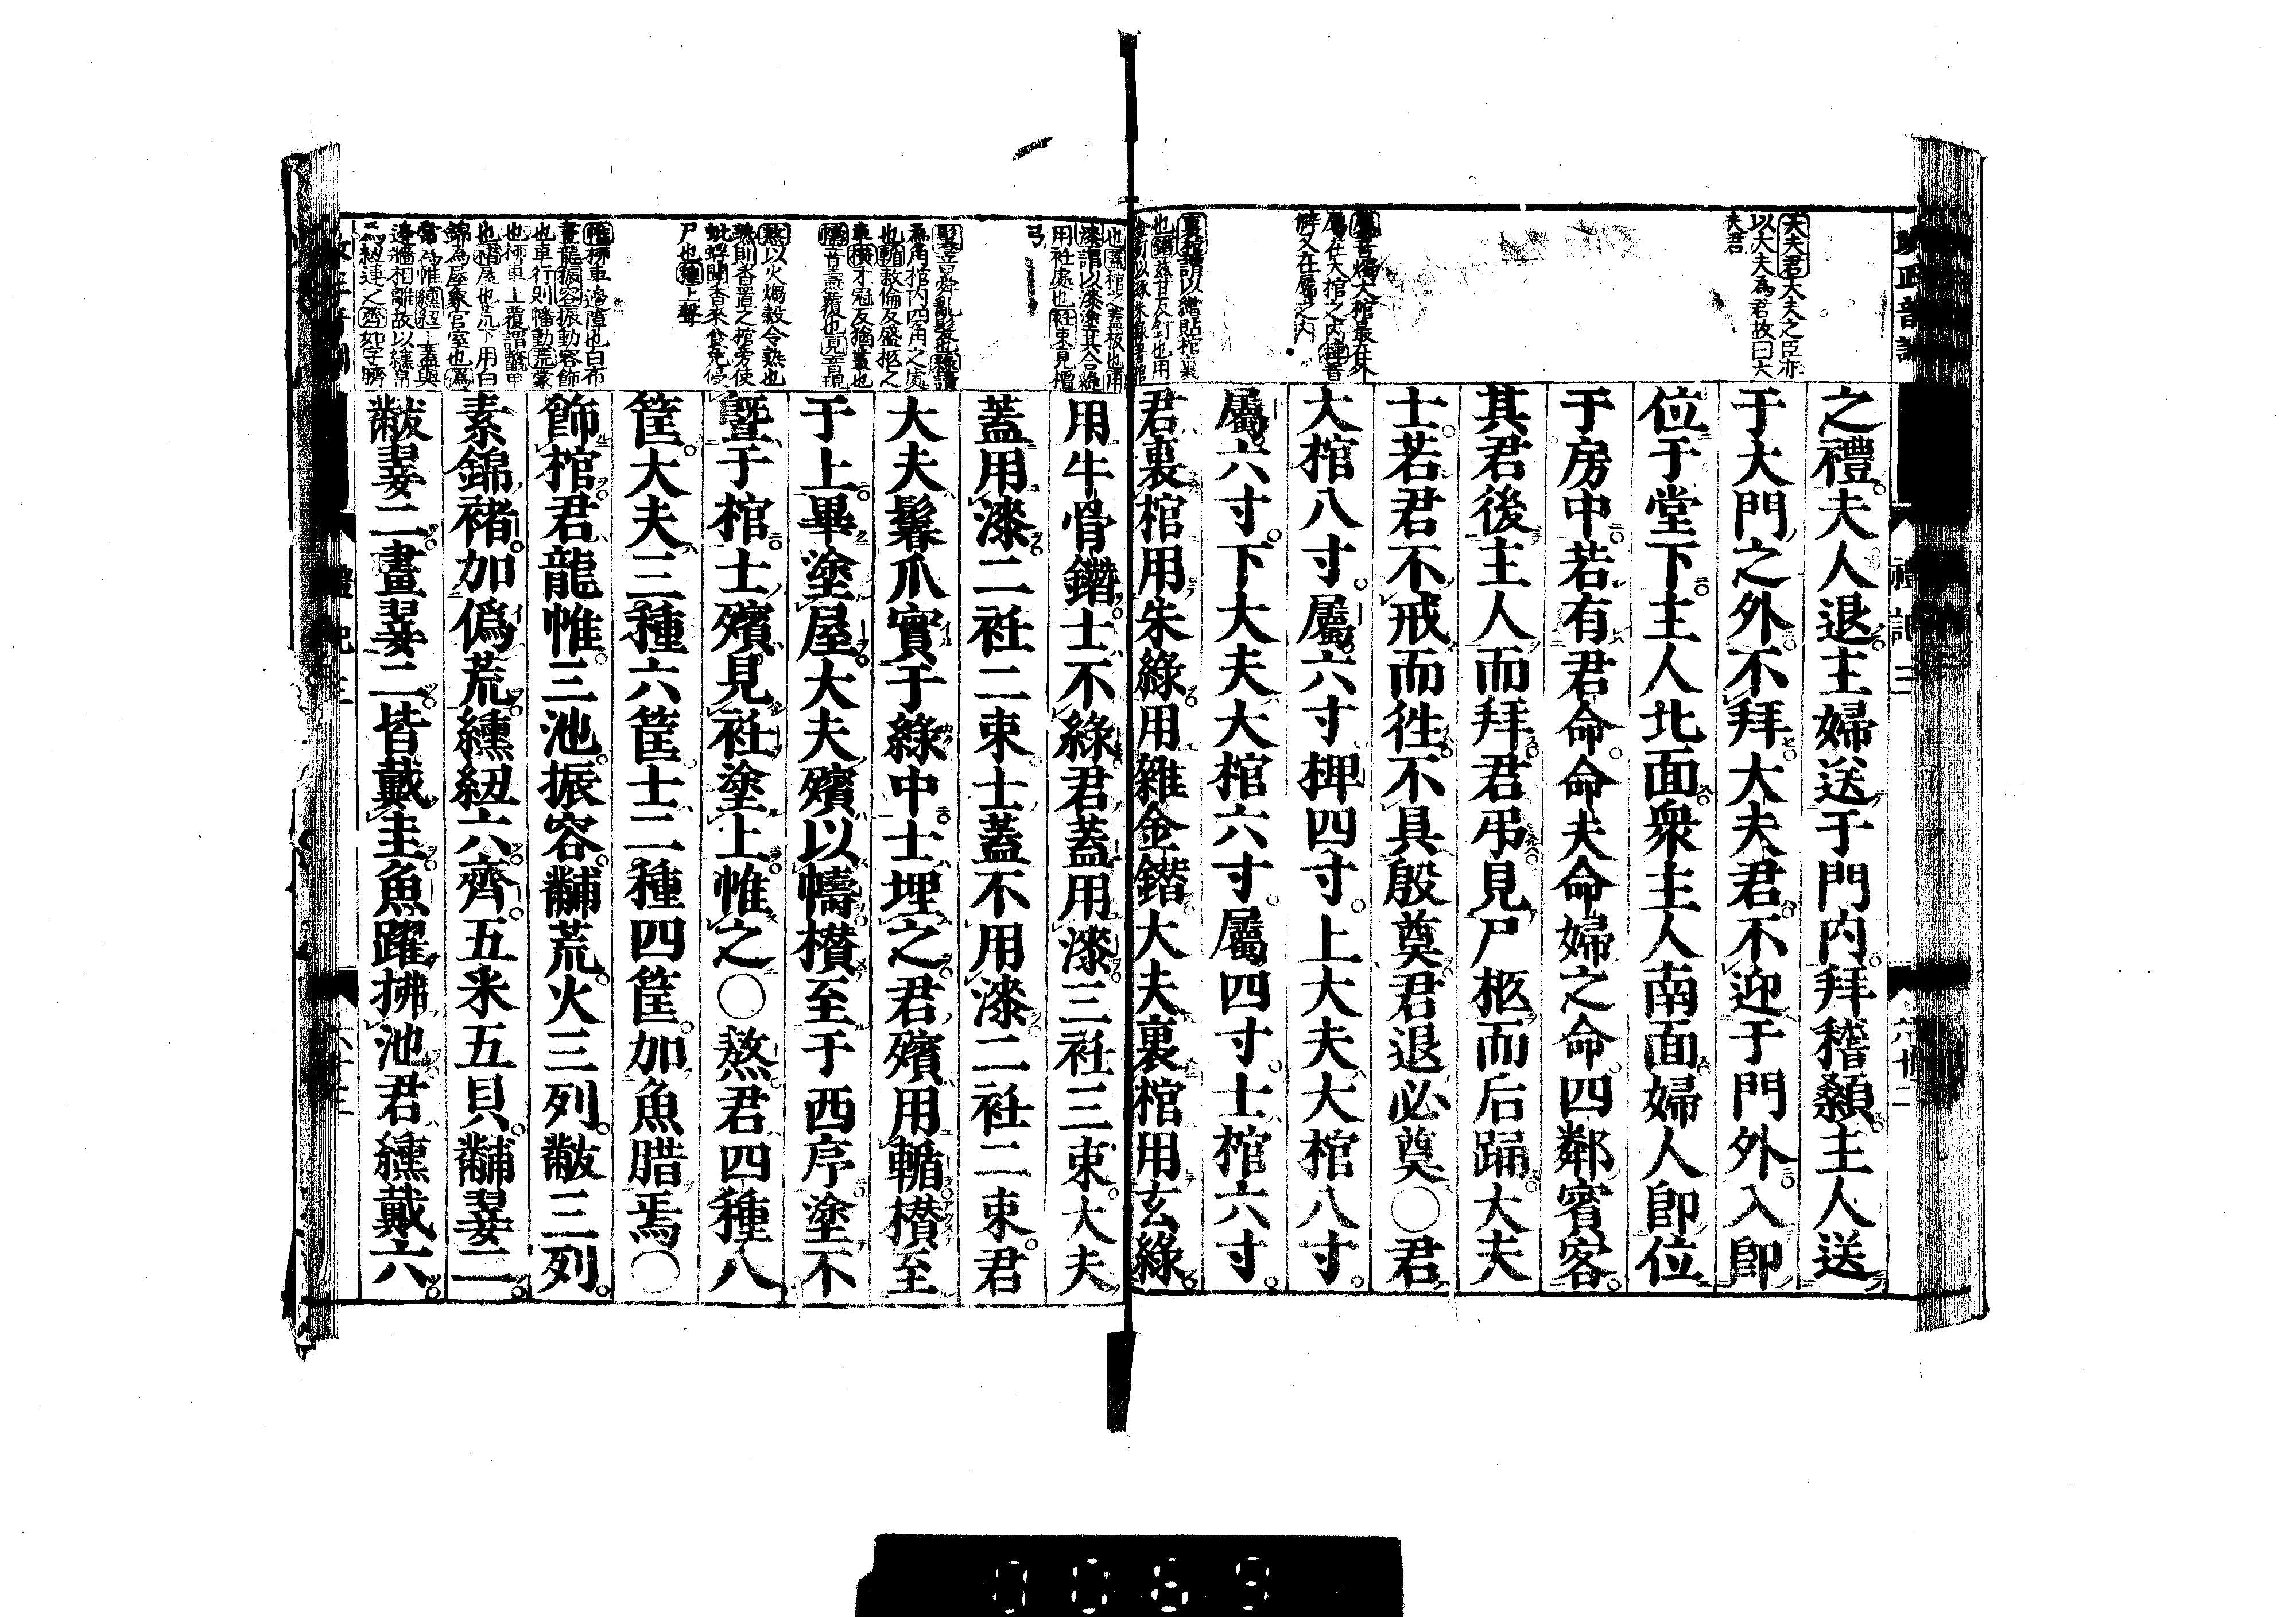 大夫君大夫之臣亦
以大夫為君故曰大
夫君
屬音燭大棺最在外
屬在大棺之內椑音
僻又在屬之內
裏棺謂以繒貼棺裏
之禮夫人退主婦送于門內拜稽顙主人送
于大門之外不拜大夫君不迎于門外入卽
位于堂下主人北面衆主人南面婦人卽位
于房中若有君命命夫命婦之命四鄰賓客
其君後主人而拜君弔見尸柩而后踊大夫
士若君不戒而徃不具殷奠君退必奠〇君
大棺八寸屬六寸椑四寸上大夫大棺八寸
屬六寸下大夫大棺六寸屬四寸士棺六寸
君裏棺用朱綠用雜金鐕大夫裏棺用玄綠
禮記三
六十二
也蓋棺之蓋板也用
漆謂以漆塗其合縫
用衽處也衽束見檀
弓
鬊音舜亂髮也綠讀
爲角棺內四角之處
也輴敕倫反盛柩之
車欑才冠反猶叢也
幬音燾覆也見音現
熬以火煼穀令熟也
熟則香置之棺旁使
蚍蜉聞香來食免侵
尸也種上聲
帷柳車邊障也白布
畫龍振容振動容飾
也車行則幡動荒蒙
也柳車上覆謂鼈甲
也褚屋也荒下用白
錦爲屋象宮室也僞
當爲帷纁紐上蓋與
邊牆相離故以纁帛
爲紐連之齊如字臍
用牛骨鐕士不綠君蓋用漆三衽三束大夫
蓋用漆二衽二束士蓋不用漆二衽二束君
大夫鬊爪實于綠中士埋之君殯用輴欑至
于上畢塗屋大夫殯以幬欑至于西序塗不
曁于棺士殯見衽塗上帷之〇熬君四種八
筐大夫三種六筐士二種四筐加魚腊焉〇
飾棺君龍帷三池振容黼荒火三列黻三列
素錦褚加僞荒纁紐六齊五采五貝黼翣二
黻翣二畫翣二皆戴圭魚躍拂池君纁戴六